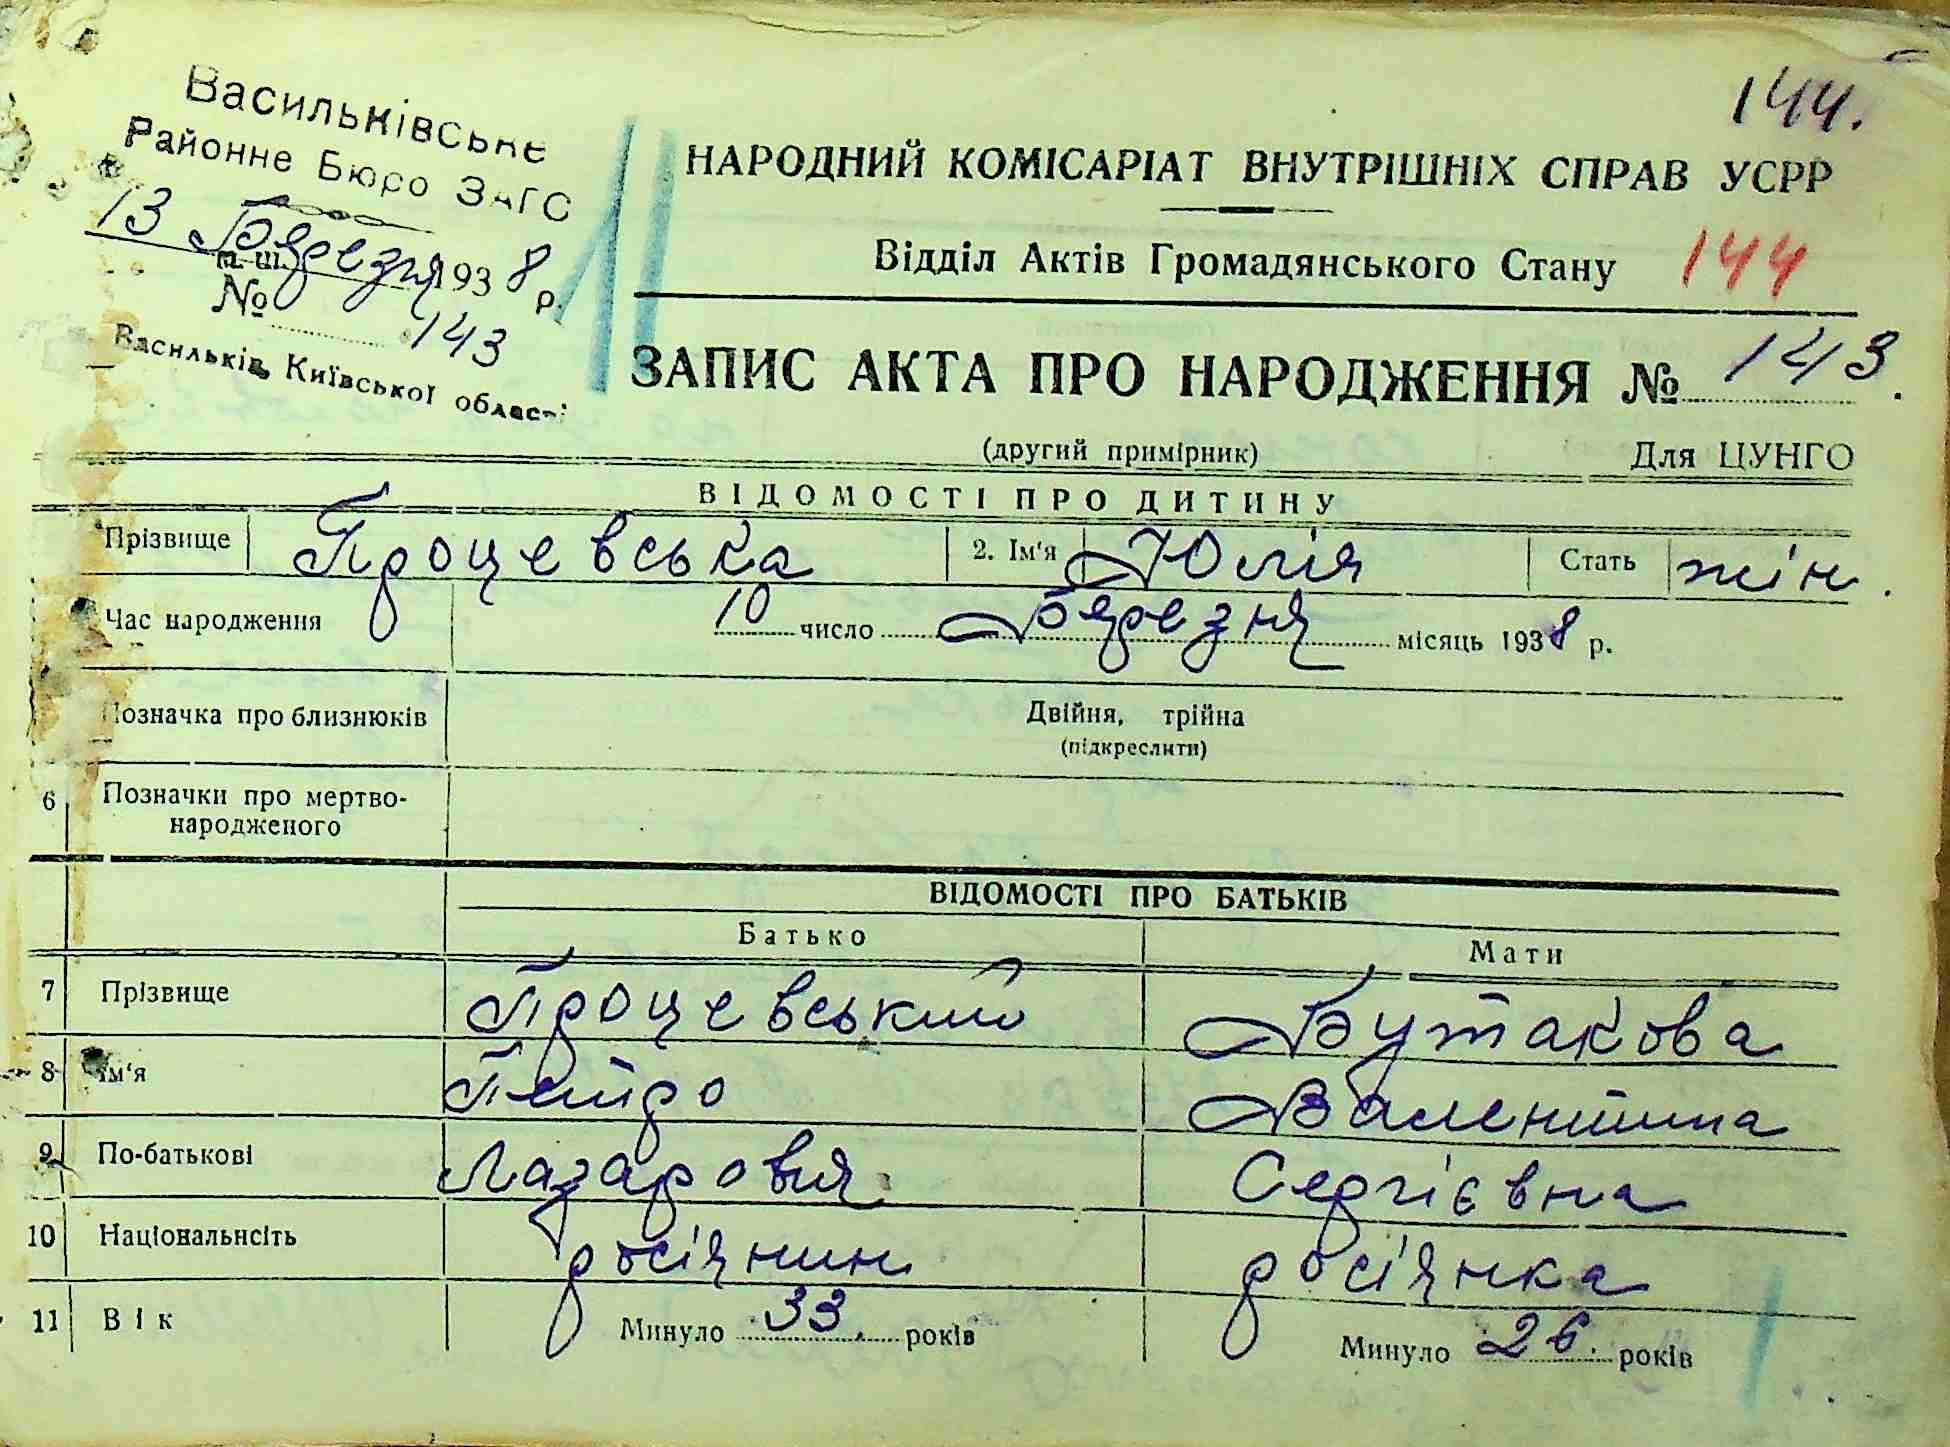 144.
Васильківське
Районне Бюро ЗАГС
13 Березня 1938 р.
№ 143
Васильків, Київської області
НАРОДНИЙ КОМІСАРІАТ ВНУТРІШНІХ СПРАВ УСРР
Відділ Актів Громадянського Стану 144
ЗАПИС АКТА ПРО НАРОДЖЕННЯ № 143.
(другий примірник) Для ЦУНГО
ВІДОМОСТІ ПРО ДИТИНУ
Прізвище Процевська 2. Ім'я Юлія Стать жін.
Час народження 10 число Березня місяць 1938 р.
Позначка про близнюків Двійня, трійна
(підкреслити)
6 Позначки про мертво-
народженого
ВІДОМОСТІ ПРО БАТЬКІВ
Батько Мати
7 Прізвище Процевський Бутакова
8 Ім'я Петро Валентина
9 По-батькові Сергієвна
10 Національнсіть росіянин росіянка
11 Вік Минуло 33. років Минуло 26. років